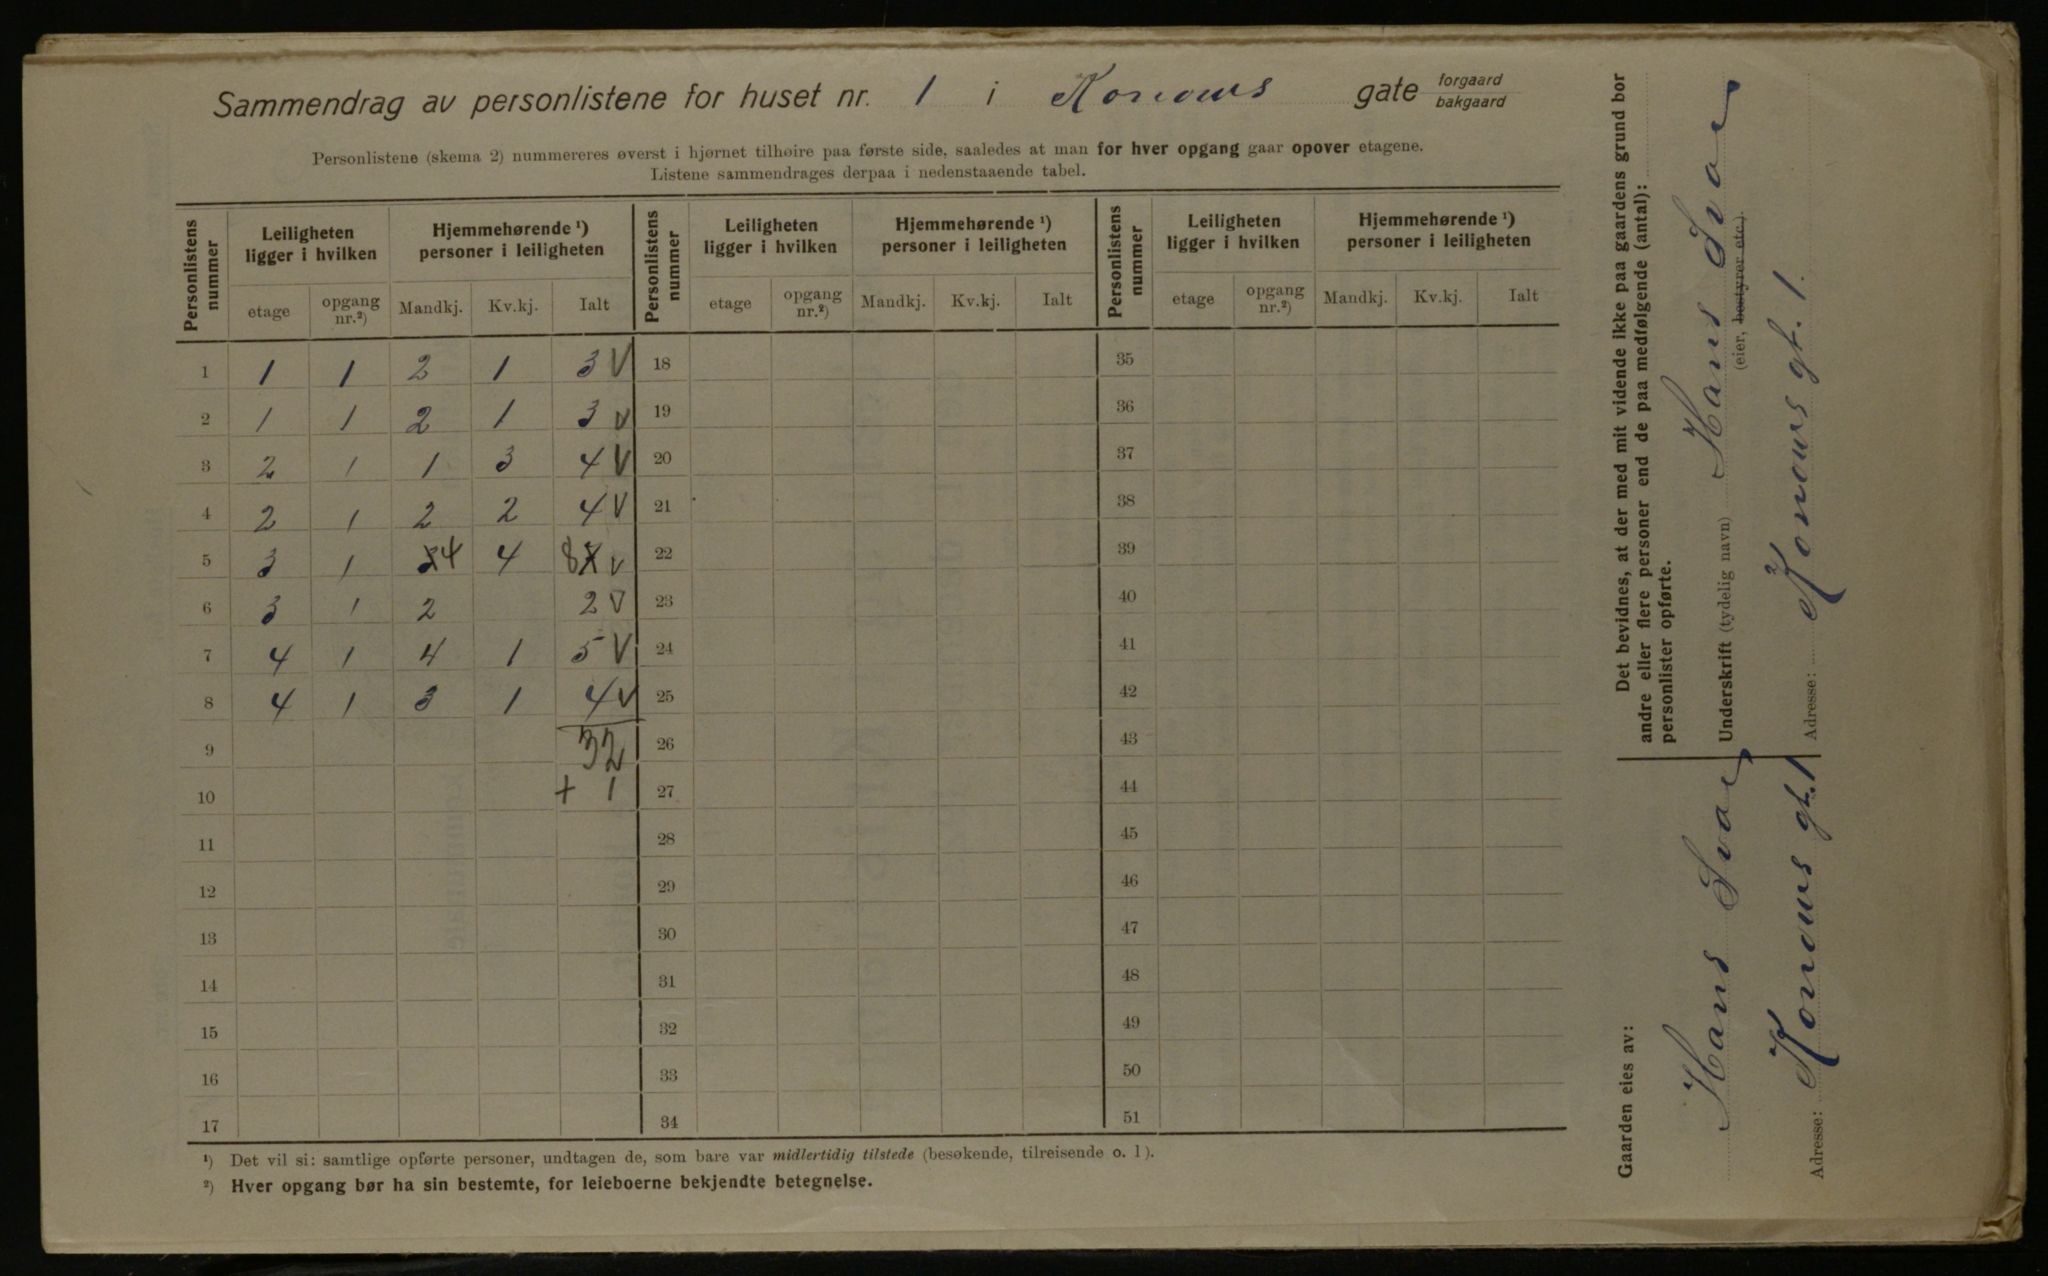 Sammendrag av personlistene for huset nr. 1 i Konows gate forgaard bakgaard
Personlistene (skema 2) nummereres øverst i hjørnet tilhøire paa første side, saaledes at man for hver opgang gaar opover etagene.
Listene sammendrages derpaa i nedenstaaende tabel.
Personlistens nummer | Leiligheten ligger i hvilken | Hjemmehørende ¹) personer i leiligheten | Personlistens nummer | Leiligheten ligger i hvilken | Hjemmehørende ¹) personer i leiligheten | Personlistens nummer | Leiligheten ligger i hvilken | Hjemmehørende ¹) personer i leiligheten
etage | opgang nr.²) | Mandkj. | Kv.kj. | Ialt | etage | opgang nr.²) | Mandkj. | Kv.kj. | Ialt | etage | opgang nr.²) | Mandkj. | Kv.kj. | Ialt
1 1 1 2 1 3 V 18 35
2 1 1 2 1 3 V 19 36
3 2 1 1 3 4 V 20 37
4 2 1 2 2 4 V 21 38
5 3 1 4 4 8 V 22 39
6 3 1 2 2 V 23 40
7 4 1 4 1 5 V 24 41
8 4 1 3 1 4 V 25 42
9 32 26 43
10 + 1 27 44
11 28 45
12 29 46
13 30 47
14 31 48
15 32 49
16 33 50
17 34 51
¹) Det vil si: samtlige opførte personer, undtagen de, som bare var midlertidig tilstede (besøkende, tilreisende o. l).
²) Hver opgang bør ha sin bestemte, for leieboerne bekjendte betegnelse.
Det bevidnes, at der med mit vidende ikke paa gaardens grund bor
andre eller flere personer end de paa medfølgende (antal):
personlister opførte.
Underskrift (tydelig navn) Hans
(eier, bestyrer etc.)
Adresse: Konows gt. 1.
Gaarden eies av:
Hans
Adresse: Konows gt. 1